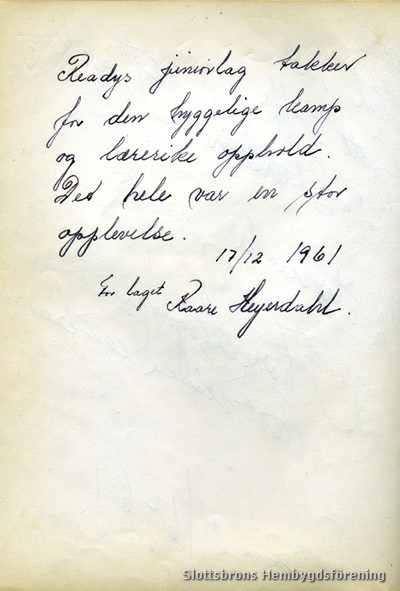 Readys juniorlag takker
for den hyggelige kamp
og lærerike opphold.
Det hele var en stor
opplevelse.
17/12 1961
For laget Kaare Heyerdahl.
Slottsbrons Hembygdsförening